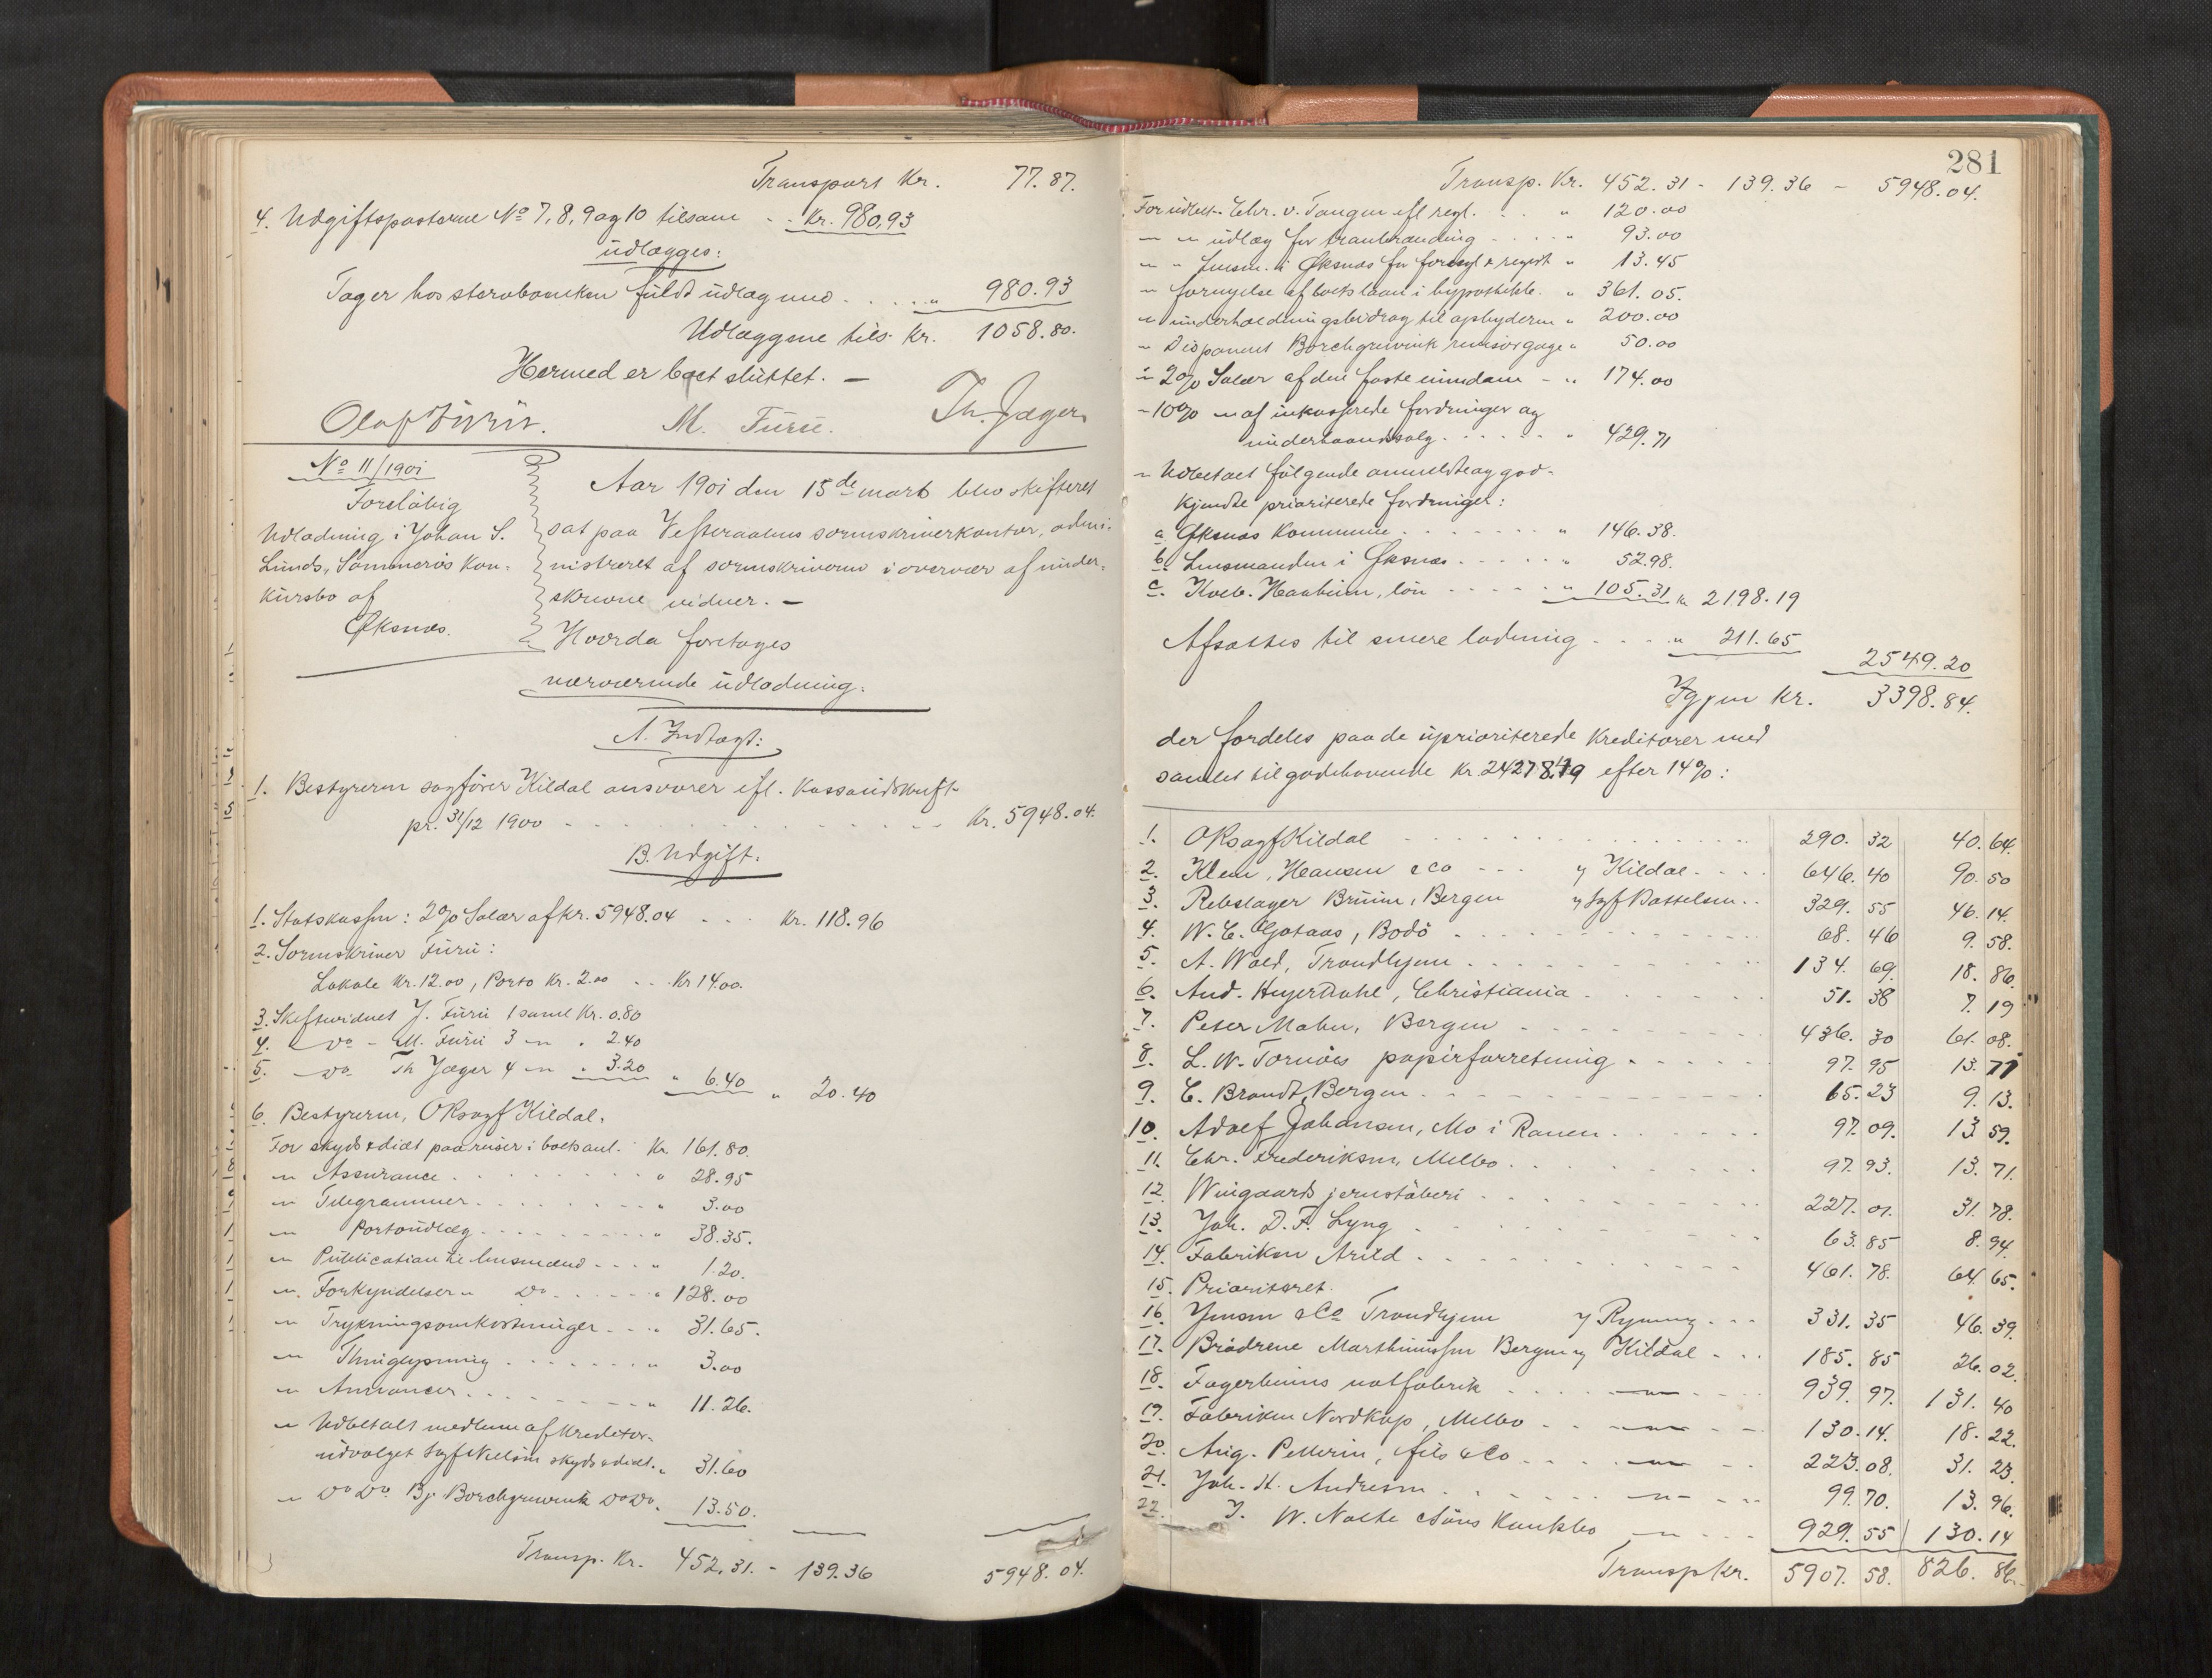 Transport Kr. 77.87.
4. Udgiftsposterne No 7, 8, 9 og 10 tilsam - - Kr. 980,93
udlægges:
Tager hos sterbobanken fuldt udlæg med . . . . " 980.93
Udlæggene tils. Kr. 1058.80.
Hermed er boet sluttet. —
Olaf M. Furu. Th. Jæger
No 11/1901
Foreløbig
Udlodning i Johan S.
Lunds, Sommerøs kon-
kursbo af
Øksnes.
Aar 1901 den 15de marts blev skifteret
sat paa Vesteraalens sorenskriverkontor, admi-
nistreret af sorenskriveren i overvær af under-
skrevne vidner. —
Hvorda foretages
nærværende udlodning.
A. Indtægt:
1. Bestyreren sagfører Kildal ansvarer efl. Kassaudskrift
pr. 31/12 1900 - - - - Kr. 5948.04.
B. Udgift.
1. Statskassen: 2% Salær af kr. 5948.04 . . . Kr. 118.96
2. Sorenskriver Furu:
Lokale Kr. 12.00, Porto Kr. 2.00 . . . Kr 14.00.
3. Skiftevidnet J. Furu 1 saml Kr. 0.80
4. " Do - M. Furu 3 " " 2.40
5. " Do Th Jæger 4 " " 3.20 " 6.40 " 20.40
6. Bestyreren, ORsagf Kildal.
For skyds & diæt paa reiser i boets anl. Kr. 161.80.
" Assurance . . . . " 28.95
" Telegrammer . . . . " 3.00
" Portoudlæg . . . . " 38.35.
" Publication til lensmænd . . . . " 1.20.
" Forkyndelser " Do . . . . " 128.00
" Trykningsomkostninger . . . " 31.65.
" Thinglysning . . . . " 3.00
" Annoncer . . . . " 11.26.
" Udbetalt medlem af kreditor-
udvalget Sagf Nielsen skyds & diæt. " 31.60
" Do Do. Bj. Borchgrevink Do Do. 13.50.
Transp. Kr. 452.31. - 139.36 5948.04.
281
Transp. Kr. 452.31 - 139.36 - 5948.04.
For udbet. Chr. v. Tangen efl regl. . . . " 120.00
" " udlæg for tranbrænding . . . . " 93.00
" " lensm. i Øksnes for forsegl & regist " 13.45
" fornyelse af boets laan i hypothekb. " 361.05.
" underholdningsbidrag til opbyderen " 200.00
" Disponent Borchgrevink revisorgage " 50.00
" 2% Salær af den faste eiendom - " 174.00
- 10% " af inkasserede fordringer og
underhaandssalg . . . . . " 429.71
" Udbetalt følgende anmeldte og god-
kjendte prioriterede fordringer:
a. Øksnes Kommune . . . . " 146.38.
b. Lensmanden i Øksnes . . . . " 52.98.
c. Kveb. Haabrien, løn . . . . " 105.31 Kr 2198.19
Afsættes til senere lodning . . . " 211.65
2549.20
Igjen Kr. 3398.84.
der fordeles paa de uprioriterede kreditorer med
samlet tilgodehavende Kr. 24278.19 efter 14%:
1. ORsagf Kildal 290.32 40.64.
2. Klem, Hansen & Co - - - v Kildal . . . . 646.40 90.50
3. Rebslager Bruun, Bergen v Sagf Basselsen . . 329.55 46.14.
4. W. C. Gotaas, Bodø . . . . 68.46 9.58.
5. A. Wold, Trondhjem . . . . 134.69. 18.86.
6. And. Heyerdahl, Christiania . . . . 51.38 7.19
7. Peter Mohn, Bergen . . . . 436.30 61.08.
8. L. W. Tornöes papirforretning . . . . 97.95 13.71
9. C. Brandt, Bergen . . . . 65.23 9.13.
10. Adolf Johansen, Mo i Ranen . . . . 97.09. 13.59.
11. Chr. Frederiksen, Melbo . . . . 97.93. 13.71.
12. Wingaards jernstøberi . . . . 227.01. 31.78.
13. Joh. D. F. Lyng . . . . 63.85 8.94.
14. Fabriken Arild . . . . 461.78. 64.65.
15. Prioriteret.
16. Jenson & Co Trondhjem v Rynning . . . 331.35 46.39.
17. Brödrene Marthinussen Bergen v Kildal - . . 185.85 26.02.
18. Fagerheims notfabrik . . . — " — 939.97. 131.40
19. Fabriken Nordkap, Melbo . . — " — 130.14. 18.22.
20. Aug. Pellerin, fils & Co . . . — " — 223.08. 31.23.
21. Joh. H. Andresen . . . . — " — 99.70. 13.96.
22. J. W. Nolte & Søns konkbo — " — 929.55 130.14
Transp Kr. 5907.58. 826.86.